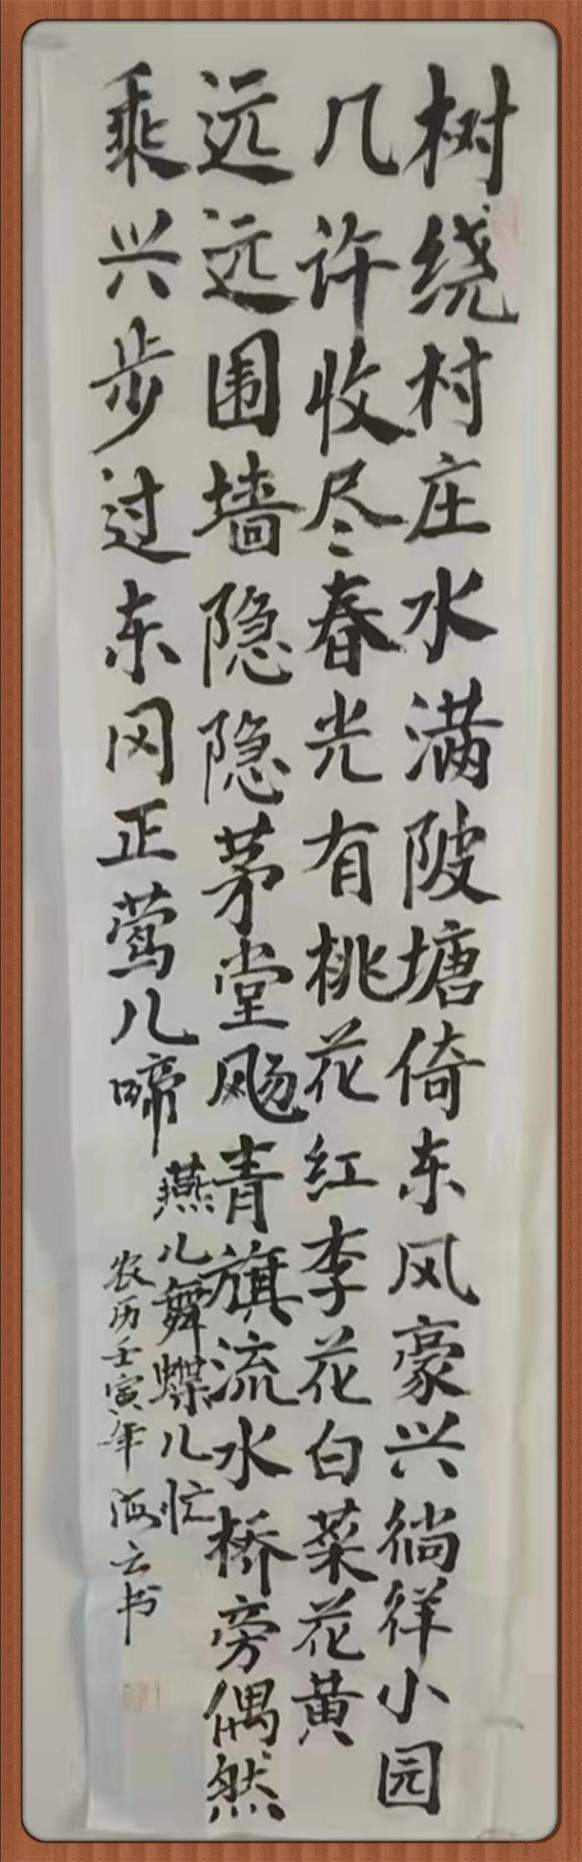 树绕村庄水满陂塘倚东风豪兴徜徉小园
几许收尽春光有桃花红李花白菜花黄
远远围墙隐隐茅堂飏青旗流水桥旁偶然
乘兴步过东冈正莺儿啼
燕儿舞蝶儿忙
农历壬寅年海云书